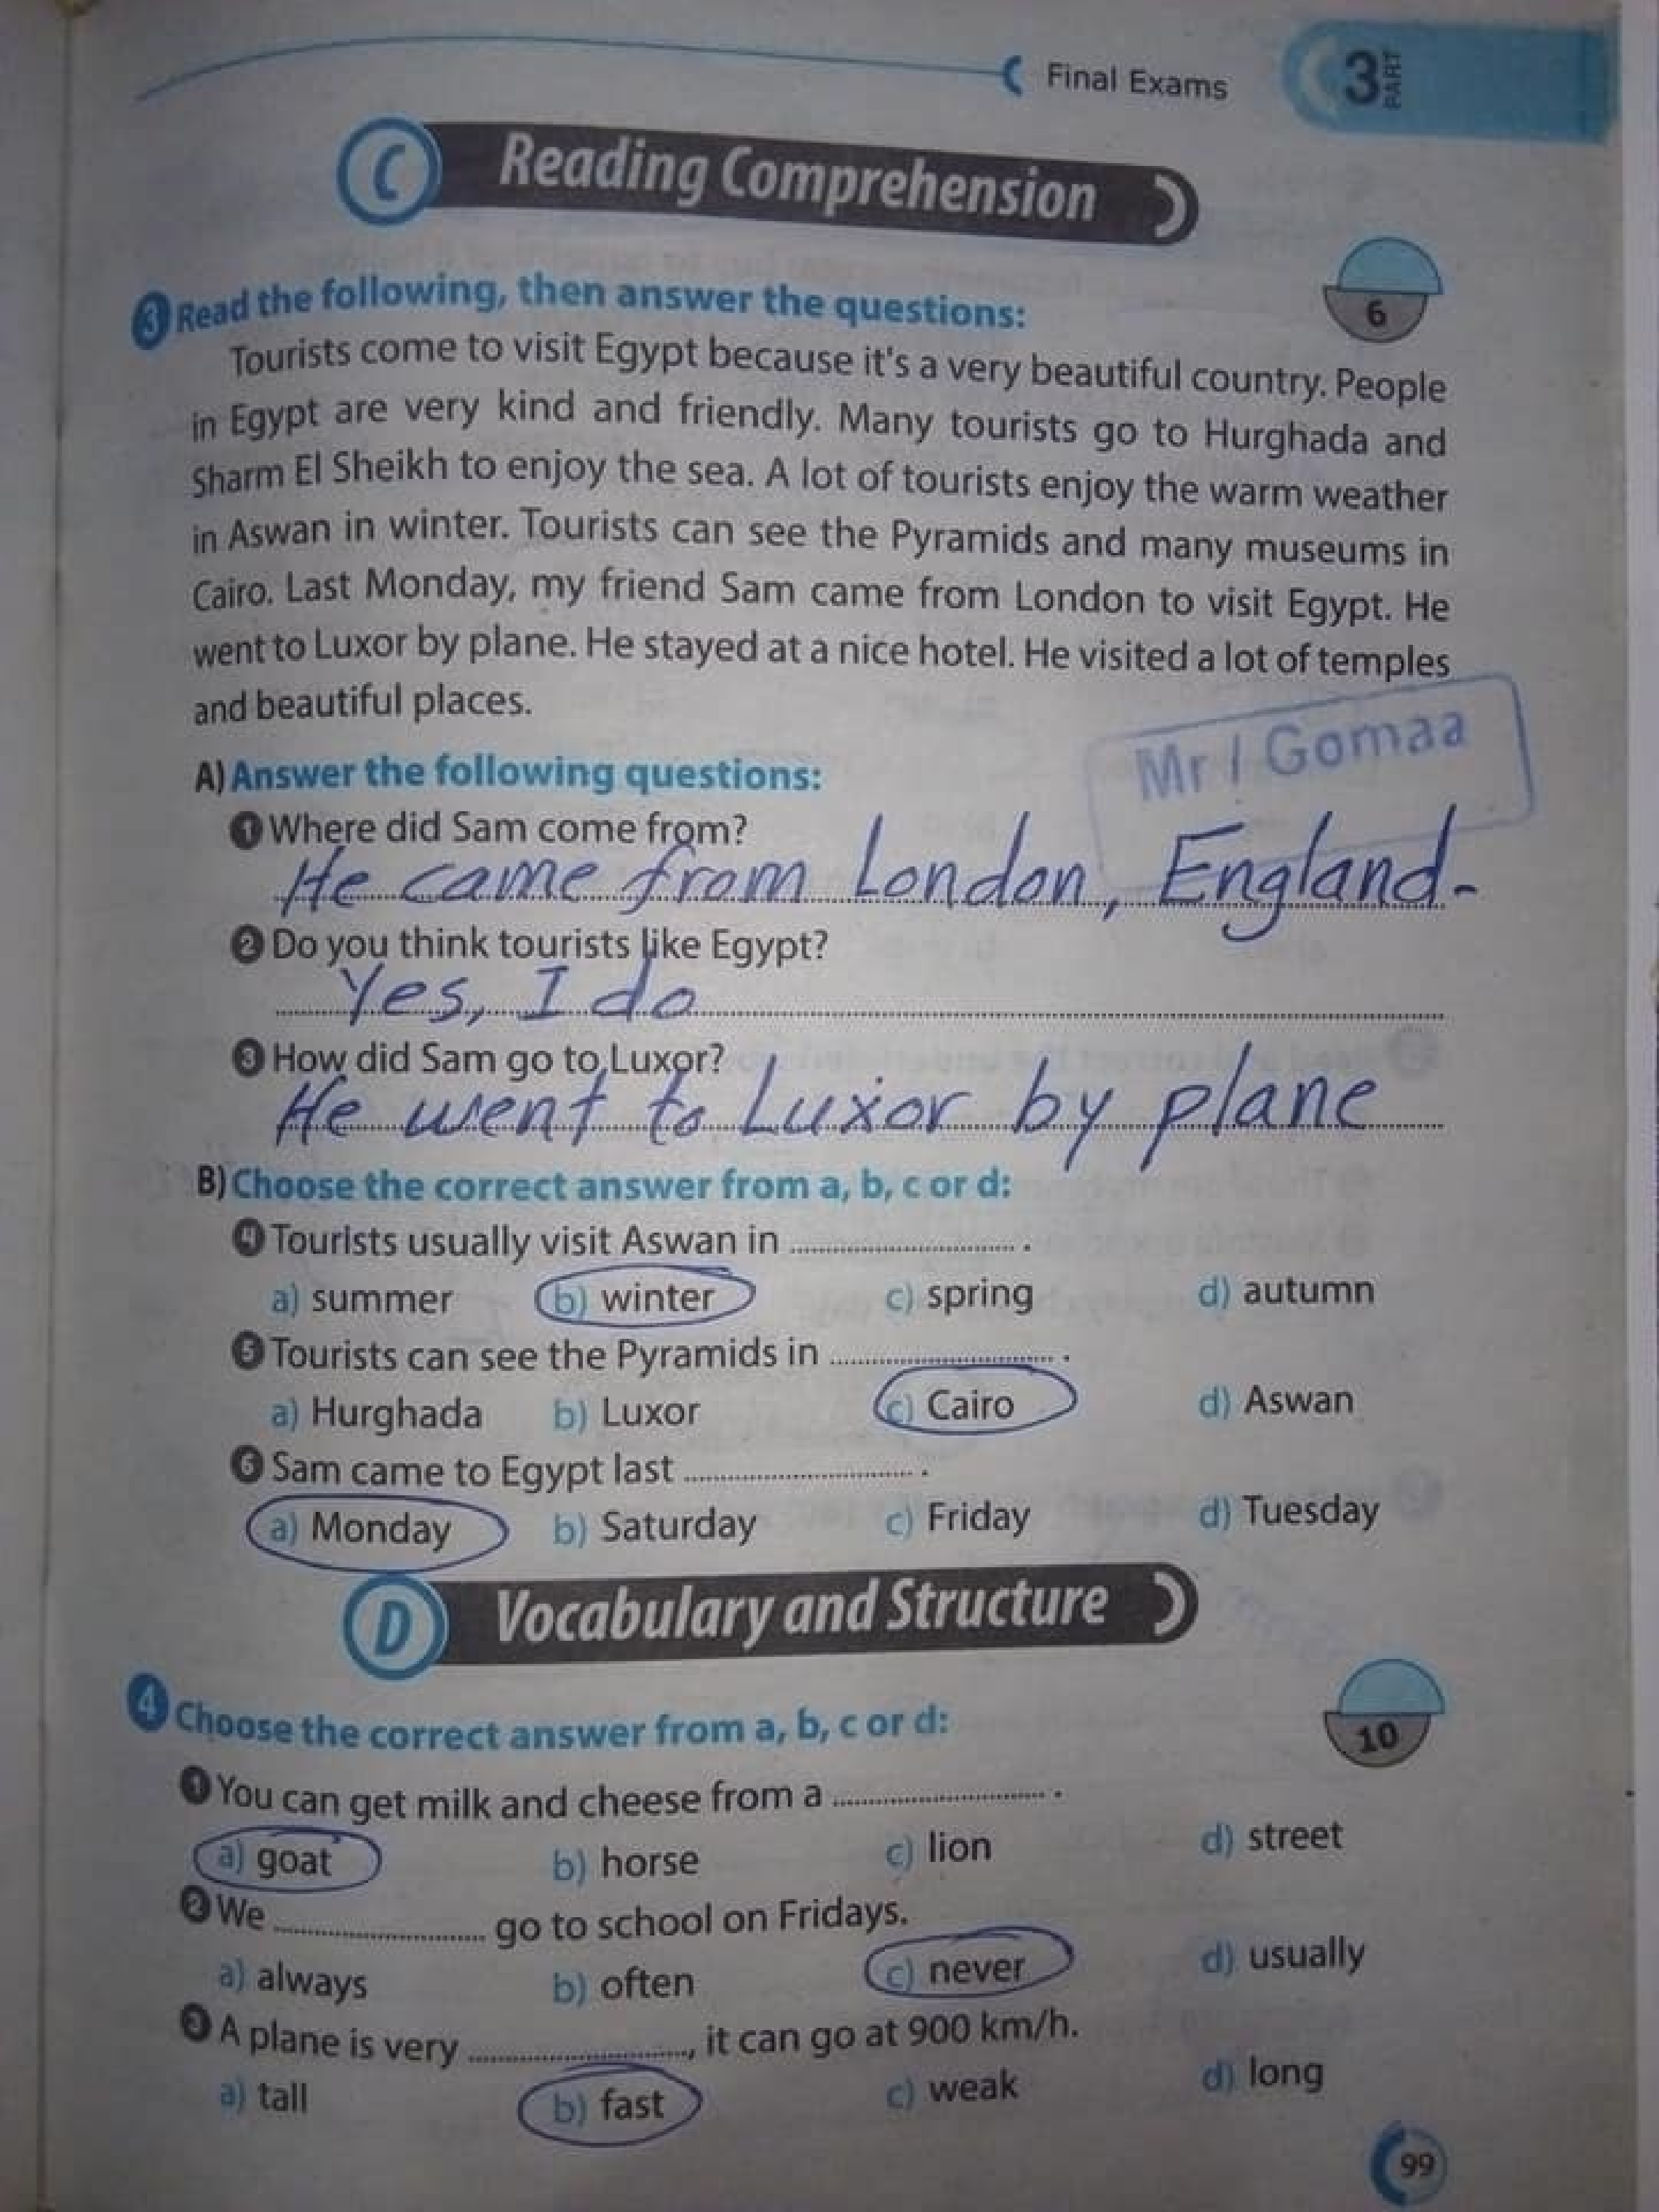 Final Exams
3 PART
C Reading Comprehension
6
3 Read the following, then answer the questions:
Tourists come to visit Egypt because it's a very beautiful country. People
in Egypt are very kind and friendly. Many tourists go to Hurghada and
Sharm El Sheikh to enjoy the sea. A lot of tourists enjoy the warm weather
in Aswan in winter. Tourists can see the Pyramids and many museums in
Cairo. Last Monday, my friend Sam came from London to visit Egypt. He
went to Luxor by plane. He stayed at a nice hotel. He visited a lot of temples
and beautiful places.
Mr / Gomaa
A) Answer the following questions:
1 Where did Sam come from?
He came from London, England.
2 Do you think tourists like Egypt?
Yes, I do
3 How did Sam go to Luxor?
He went to Luxor by plane
B) Choose the correct answer from a, b, c or d:
4 Tourists usually visit Aswan in .......................... .
a) summer b) winter c) spring d) autumn
5 Tourists can see the Pyramids in .......................... .
a) Hurghada b) Luxor c) Cairo d) Aswan
6 Sam came to Egypt last .......................... .
a) Monday b) Saturday c) Friday d) Tuesday
D Vocabulary and Structure
10
4 Choose the correct answer from a, b, c or d:
1 You can get milk and cheese from a .......................... .
a) goat b) horse c) lion d) street
2 We .......................... go to school on Fridays.
a) always b) often c) never d) usually
3 A plane is very .........................., it can go at 900 km/h.
a) tall b) fast c) weak d) long
99